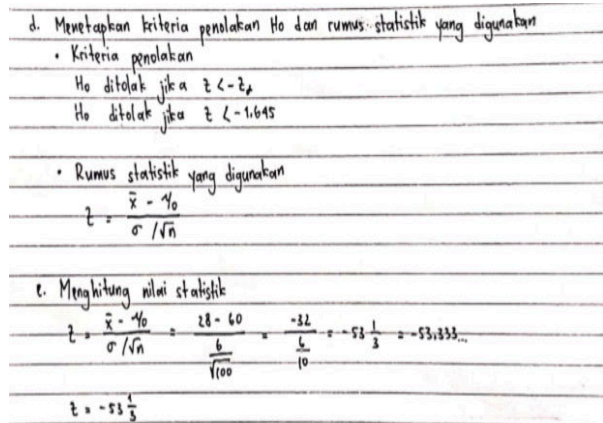 d. Menetapkan kriteria penolakan Ho dan rumus statistik yang digunakan
• Kriteria penolakan
Ho ditolak jika z < -zα
Ho ditolak jika z < -1.645
• Rumus statistik yang digunakan
z = (x̄ - μ₀) / (σ/√n)
e. Menghitung nilai statistik
z = (x̄ - μ₀) / (σ/√n) = (28 - 60) / (6/√100) = -32 / (6/10) = -53 1/3 = -53,333...
z = -53 1/3